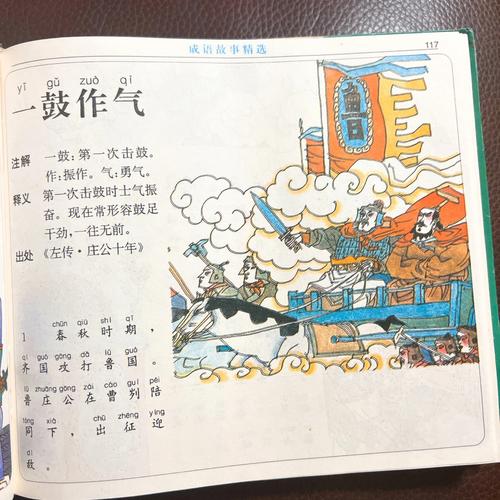 成语故事精选
117
yī gǔ zuò qì
一鼓作气
注解 一鼓：第一次击鼓。
作：振作。气：勇气。
释义 第一次击鼓时士气振
奋。现在常形容鼓足
干劲，一往无前。
出处 《左传·庄公十年》
魯
chūn qiū shí qī
1 春秋时期，
qí guó gōng dǎ lǔ guó
齐国攻打鲁国。
lǔ zhuāng gōng zài cáo guì péi
鲁庄公在曹刿陪
tóng xià chū zhēng yíng
同下，出征迎
dí
敌。